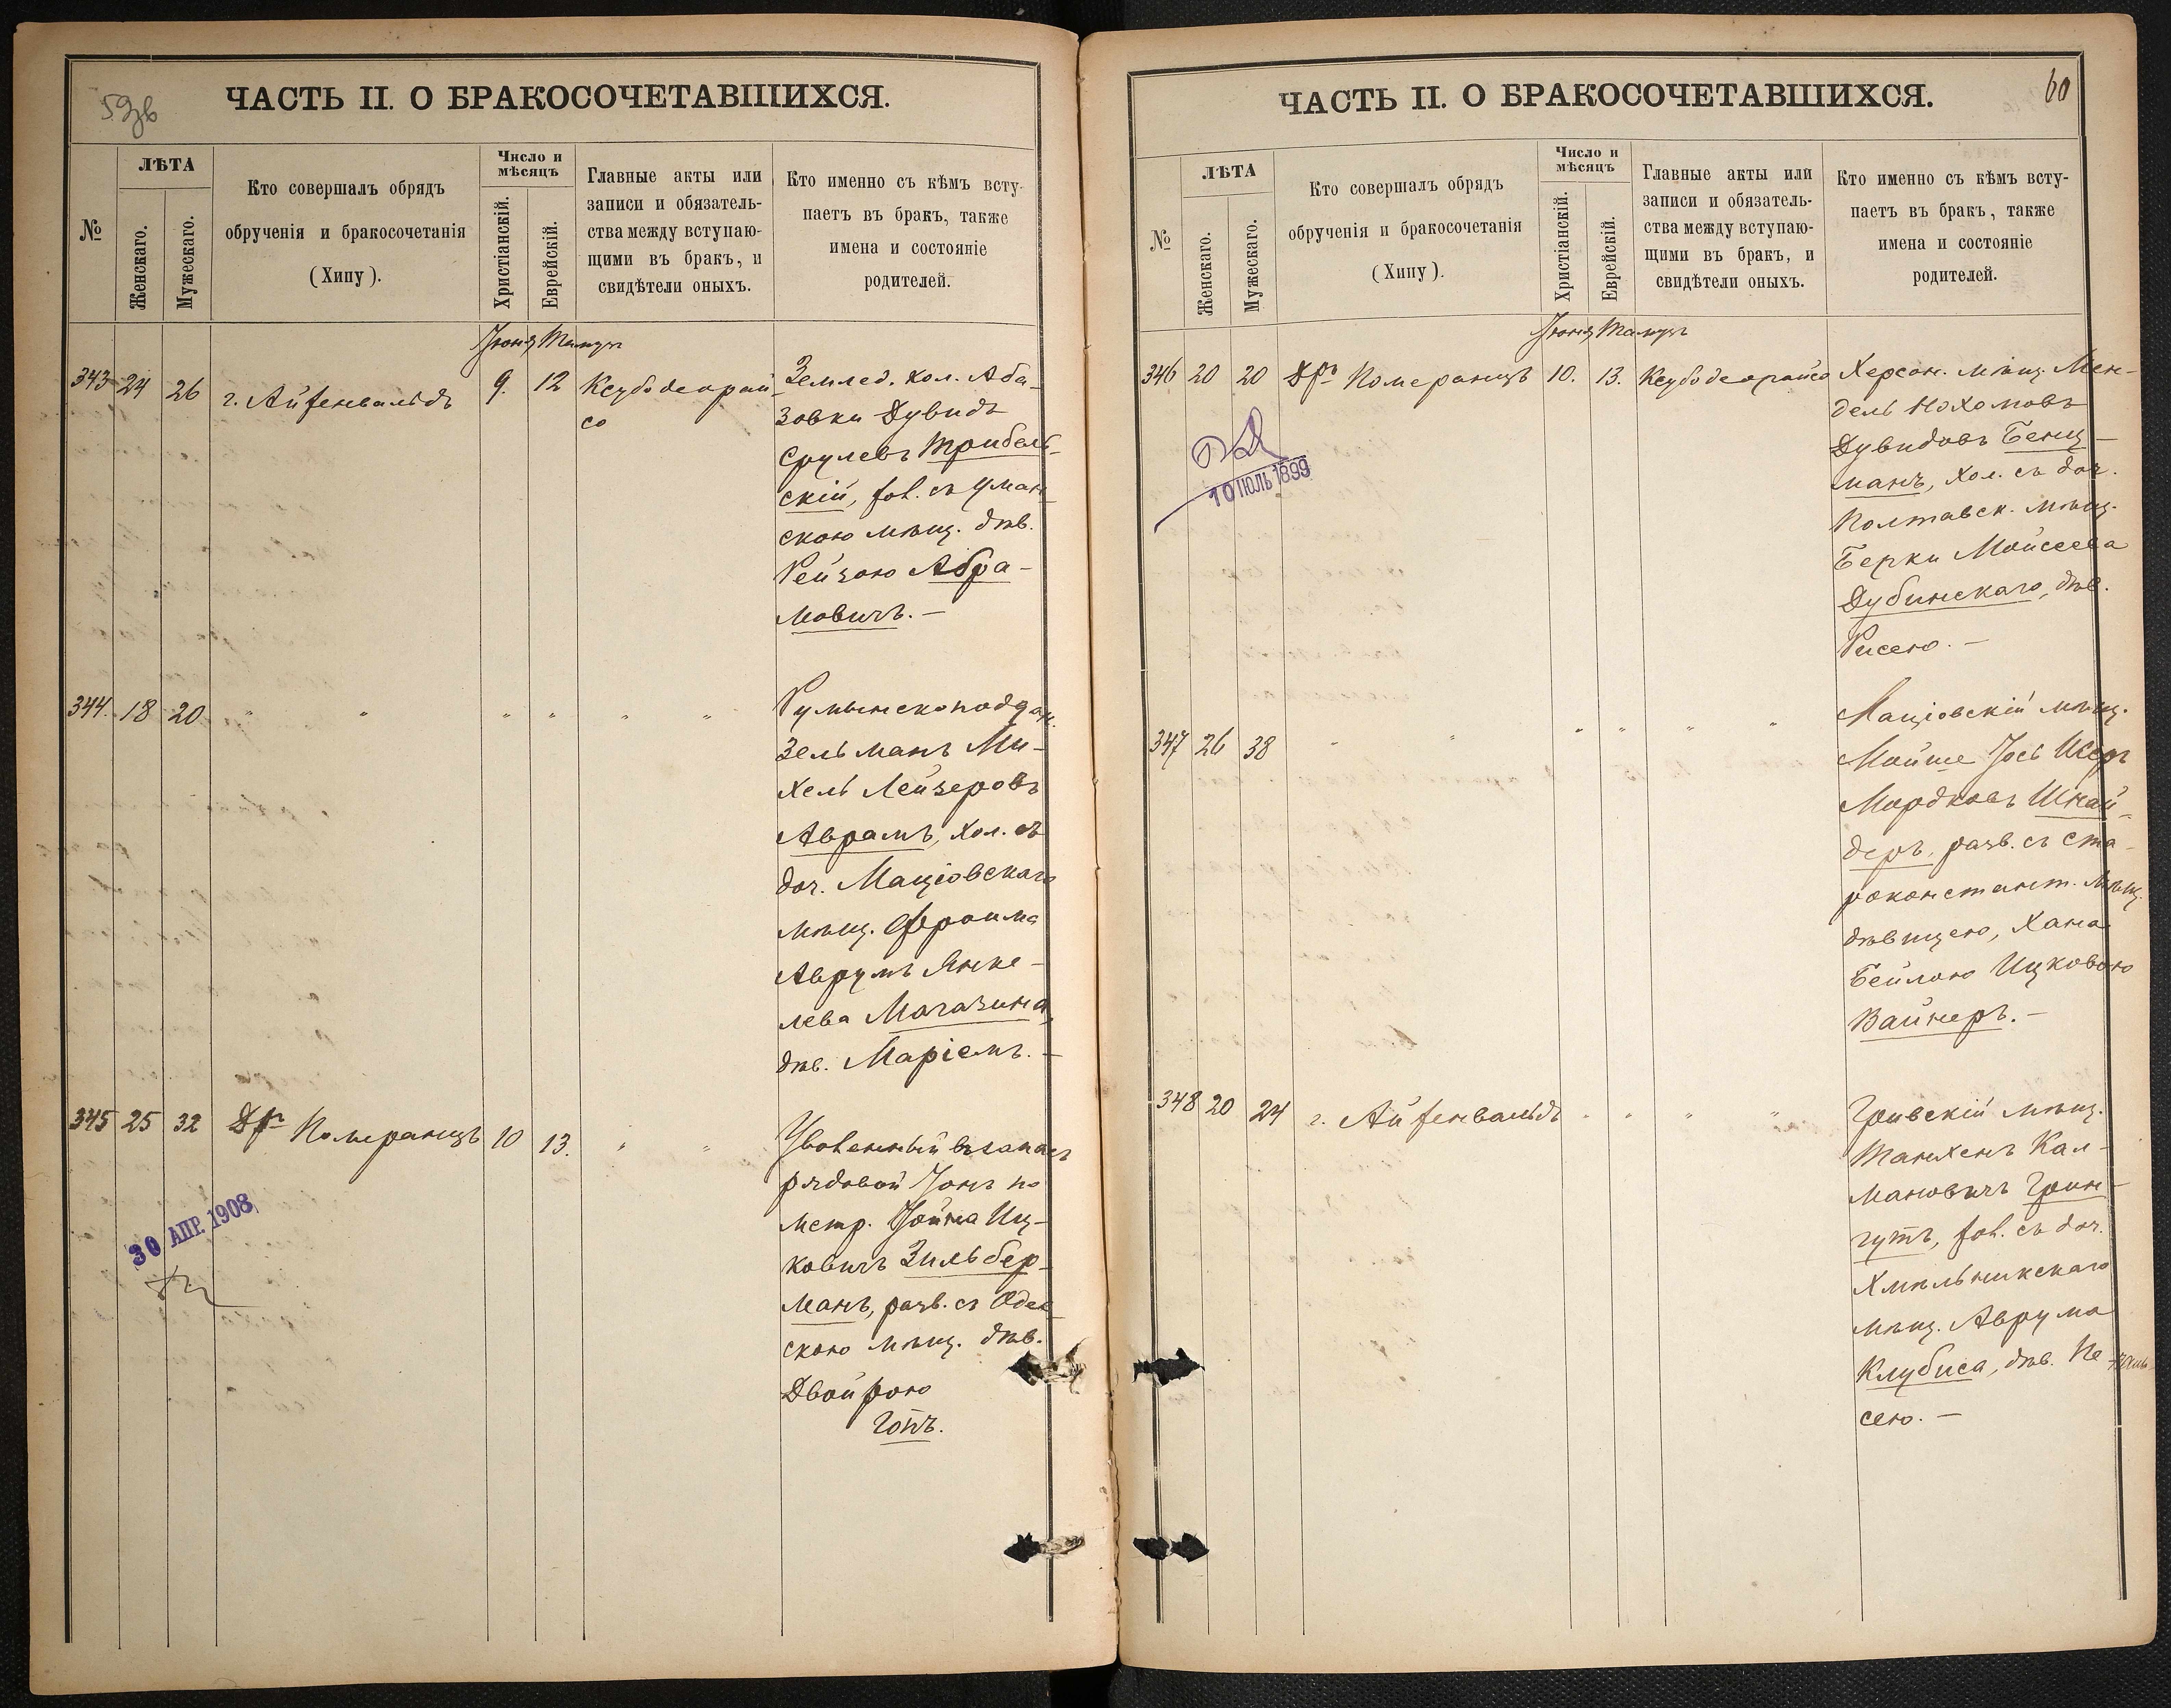 59об
ЧАСТЬ II. О БРАКОСОЧЕТАВШИХСЯ.
№
ЛѢТА
Женскаго.
Мужескаго.
Кто совершалъ обрядъ
обрученія и бракосочетанія
(Хипу).
Число и
мѣсяцъ
Христіанскій.
Еврейскій.
Главные акты или
записи и обязатель-
ства между вступаю-
щими въ бракъ, и
свидѣтели оныхъ.
Кто именно съ кѣмъ всту-
паетъ въ бракъ, также
имена и состояніе
родителей.
Іюня Тамузъ
343 24 26 г. Айзенвальдъ 9. 12 Ксубо деорай-
со
Землед. кол. Аба-
зовки Дувидъ
Срулевъ Трибель-
скій, хол. съ Уман-
скою мѣщ. дѣв.
Рейзою Абра-
мовичъ. —
344. 18 20 " " " " " "
Румынскоподдан.
Зельманъ Ми-
хель Лейзеровъ
Аврамъ, хол. съ
доч. Маціовскаго
мѣщ. Фроима
Аврумъ Янке-
лева Магазина,
дѣв. Маріемъ. —
345 25 32 Дръ Померанцъ 10 13. " "
Уволенный въ запасъ
рядовой Іонъ по
метр. Іойна Иц-
ковичъ Зильбер-
манъ, разв. съ Одес-
скою мѣщ. дѣв.
Двойрою
Гопъ.
30 АПР. 1908
60
ЧАСТЬ II. О БРАКОСОЧЕТАВШИХСЯ.
№
ЛѢТА
Женскаго.
Мужескаго.
Кто совершалъ обрядъ
обрученія и бракосочетанія
(Хипу).
Число и
мѣсяцъ
Христіанскій.
Еврейскій.
Главные акты или
записи и обязатель-
ства между вступаю-
щими въ бракъ, и
свидѣтели оныхъ.
Кто именно съ кѣмъ всту-
паетъ въ бракъ, также
имена и состояніе
родителей.
Іюня Тамузъ
346 20 20 Дръ Померанцъ 10. 13. Ксубо деорайсо
Херсон. мѣщ. Мен-
дель Нохомовъ
Дувидовъ Бенц-
манъ, хол. съ доч.
Полтавск. мѣщ.
Берки Мойсеева
Дубинскаго, дѣв.
Рисею. —
10 ІЮЛЬ 1899
347 26 38 " " " " " "
Маціовскій мѣщ.
Мойше Іось Исеръ
Мордковъ Шнай-
деръ, разв. съ Ста-
роконстант. мѣщ.
дѣвицею, Хана
Бейлою Ицковою
Вайнеръ. —
348 20 24 г. Айзенвальдъ " " " "
Гривскій мѣщ.
Танхенъ Кал-
мановичъ Грин-
гутъ, хол. съ доч.
Хмѣльникскаго
мѣщ. Аврума
Клубиса, дѣв. Пе-
сею. —